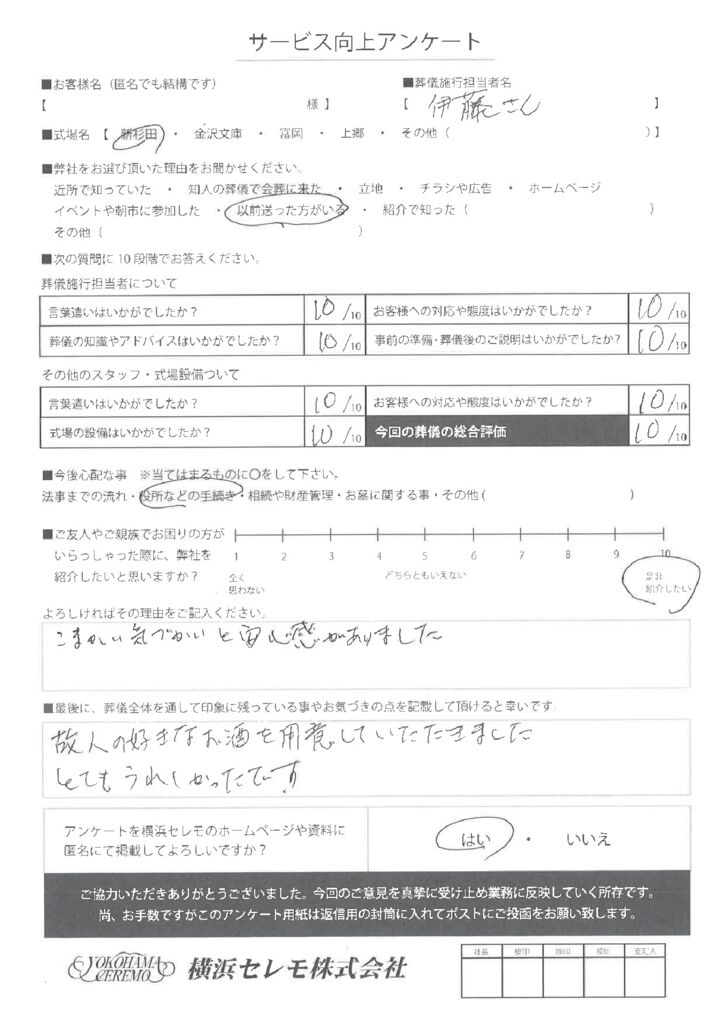 サービス向上アンケート
■お客様名（匿名でも結構です）
【 様 】
■葬儀施行担当者名
【 伊藤さん 】
■式場名 【 新杉田 ・ 金沢文庫 ・ 富岡 ・ 上郷 ・ その他（ ）】
■弊社をお選び頂いた理由をお聞かせください。
近所で知っていた ・ 知人の葬儀で会葬に来た ・ 立地 ・ チラシや広告 ・ ホームページ
イベントや朝市に参加した ・ 以前送った方がいる ・ 紹介で知った（ ）
その他（ ）
■次の質問に10段階でお答えください。
葬儀施行担当者について
言葉遣いはいかがでしたか？ 10 /10 お客様への対応や態度はいかがでしたか？ 10 /10
葬儀の知識やアドバイスはいかがでしたか？ 10 /10 事前の準備・葬儀後のご説明はいかがでしたか？ 10 /10
その他のスタッフ・式場設備ついて
言葉遣いはいかがでしたか？ 10 /10 お客様への対応や態度はいかがでしたか？ 10 /10
式場の設備はいかがでしたか？ 10 /10 今回の葬儀の総合評価 10 /10
■今後心配な事 ※当てはまるものに〇をして下さい。
法事までの流れ・役所などの手続き・相続や財産管理・お墓に関する事・その他（ ）
■ご友人やご親族でお困りの方が
いらっしゃった際に、弊社を
紹介したいと思いますか？
1 2 3 4 5 6 7 8 9 10
全く
思わない
どちらともいえない
是非
紹介したい
よろしければその理由をご記入ください。
こまかい気づかいと安心感がありました
■最後に、葬儀全体を通して印象に残っている事やお気づきの点を記載して頂けると幸いです。
故人の好きなお酒を用意していただきました
とてもうれしかったです
アンケートを横浜セレモのホームページや資料に
匿名にて掲載してよろしいですか？
はい ・ いいえ
ご協力いただきありがとうございました。今回のご意見を真摯に受け止め業務に反映していく所存です。
尚、お手数ですがこのアンケート用紙は返信用の封筒に入れてポストにご投函をお願い致します。
YOKOHAMA
CEREMO
横浜セレモ株式会社
社長 検印 検印 検印 支配人